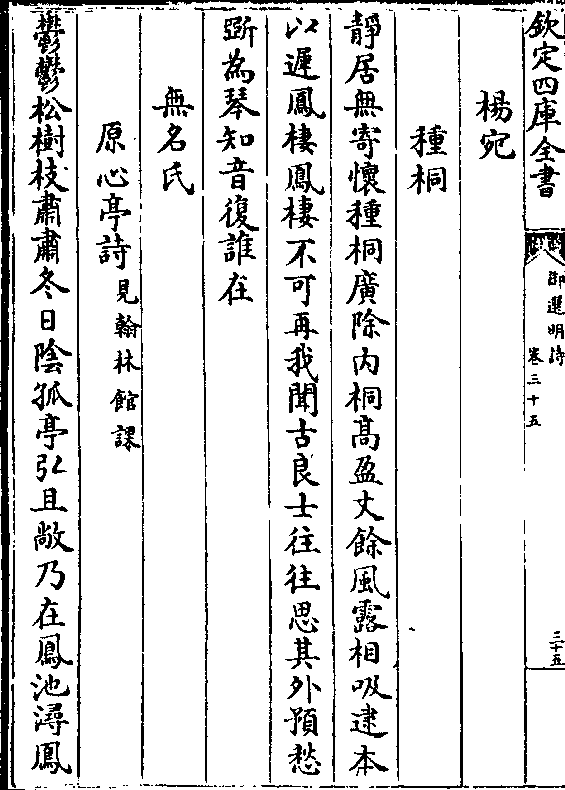 欽定四庫全書
御選明詩
卷三十五
三十五
楊宛
種桐
靜居無寄懷種桐廣除内桐髙盈丈餘風露相吸逮本
以遲鳳棲鳳棲不可再我聞古良士往往思其外預愁
斵為琴知音復誰在
無名氏
原心亭詩見翰林館課
鬱鬱松樹枝肅肅冬日陰孤亭弘且敞乃在鳳池潯鳳